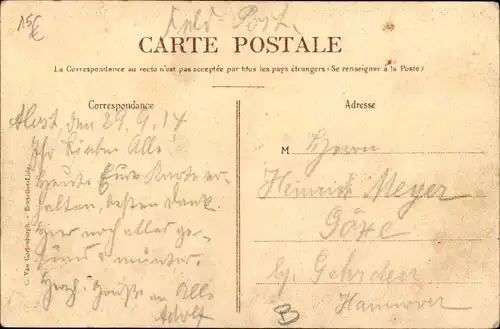 15€
Feld-Post.
CARTE POSTALE
La Correspondance au recto n'est pas acceptée par tous les pays étrangers (Se renseigner à la Poste)
Correspondance
Adresse
Alost, den 29.9.14
Ihr Lieben Alle!
Heute Eure Karte er-
halten, besten Dank.
Hier noch alles ge-
sund & munter.
Herzl. Grüße an Alle
Adolf
M Herrn
Heinrich Meyer
Göxe
b/ Gehrden
Hannover
B